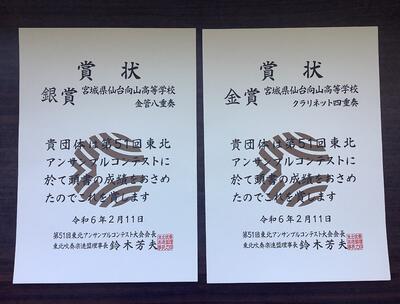 賞状
銀賞 宮城県仙台向山高等学校
金管八重奏
貴団体は第51回東北
アンサンブルコンテストに
於て頭書の成績をおさめ
たのでこれを賞します
令和6年2月11日
第51回東北アンサンブルコンテスト大会会長
東北吹奏楽連盟理事長 鈴木芳夫
賞状
金賞 宮城県仙台向山高等学校
クラリネット四重奏
貴団体は第51回東北
アンサンブルコンテストに
於て頭書の成績をおさめ
たのでこれを賞します
令和6年2月11日
第51回東北アンサンブルコンテスト大会会長
東北吹奏楽連盟理事長 鈴木芳夫